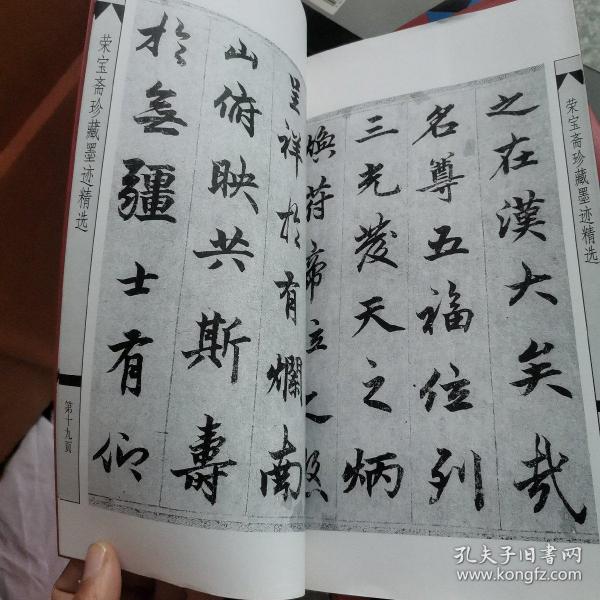 荣宝斋珍藏墨迹精选
之在漢大矣哉
名尊五福位列
三光發天之炳
煥帝之
呈祥於有爛南
山俯映共斯壽
於無疆士有仰
荣宝斋珍藏墨迹精选
第十九頁
孔夫子旧书网
www.kongfz.com